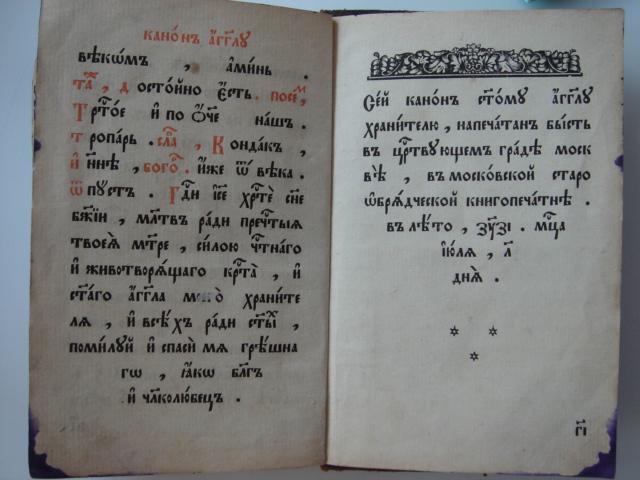 КАНО́НЪ А҆́ГГ҃ЛУ
вѣкѡмъ , а҆ми́нь .
та́ж , д остойно є҆сть . посе́м
трт҃о́е и҆ по ѻ҆́ч҃е нашъ .
тропарь . сла̑ , кондакъ ,
и҆ нн҃ѣ , бого́ . и҆́же ѿ вѣка .
ѿпустъ . гд҃и і҆с҃е хрт҃е сн҃е
бж҃їи , мл҃твъ ради преч҃тыѧ
твоеѧ̀ мт҃ре , силою ч҃тнаго
и҆ животворѧщаго крт҃а̀ , и҆
ст҃аго а҆́гг҃ла моего̀ храните
лѧ , и҆ всѣхъ ради ст҃ы́х ,
помилуй и҆ спаси́ мѧ грѣшна
гѡ , ꙗ҆́кѡ бл҃гъ
и҆ чл҃колюбецъ .
Се́й кано́нъ ст҃о́му а҆́гг҃лу
храни́телю , напеча́танъ бы́сть
въ цр҃твующемъ гра́дѣ моск
вѣ̀ , въ моско́вской старо
ѻ҆брѧ́дческой книгопеча́тнѣ .
въ лѣ́то , ҂зу҃кз . мц҃а
і҆ю́лѧ , л҃
днѧ̀ .
г҃і